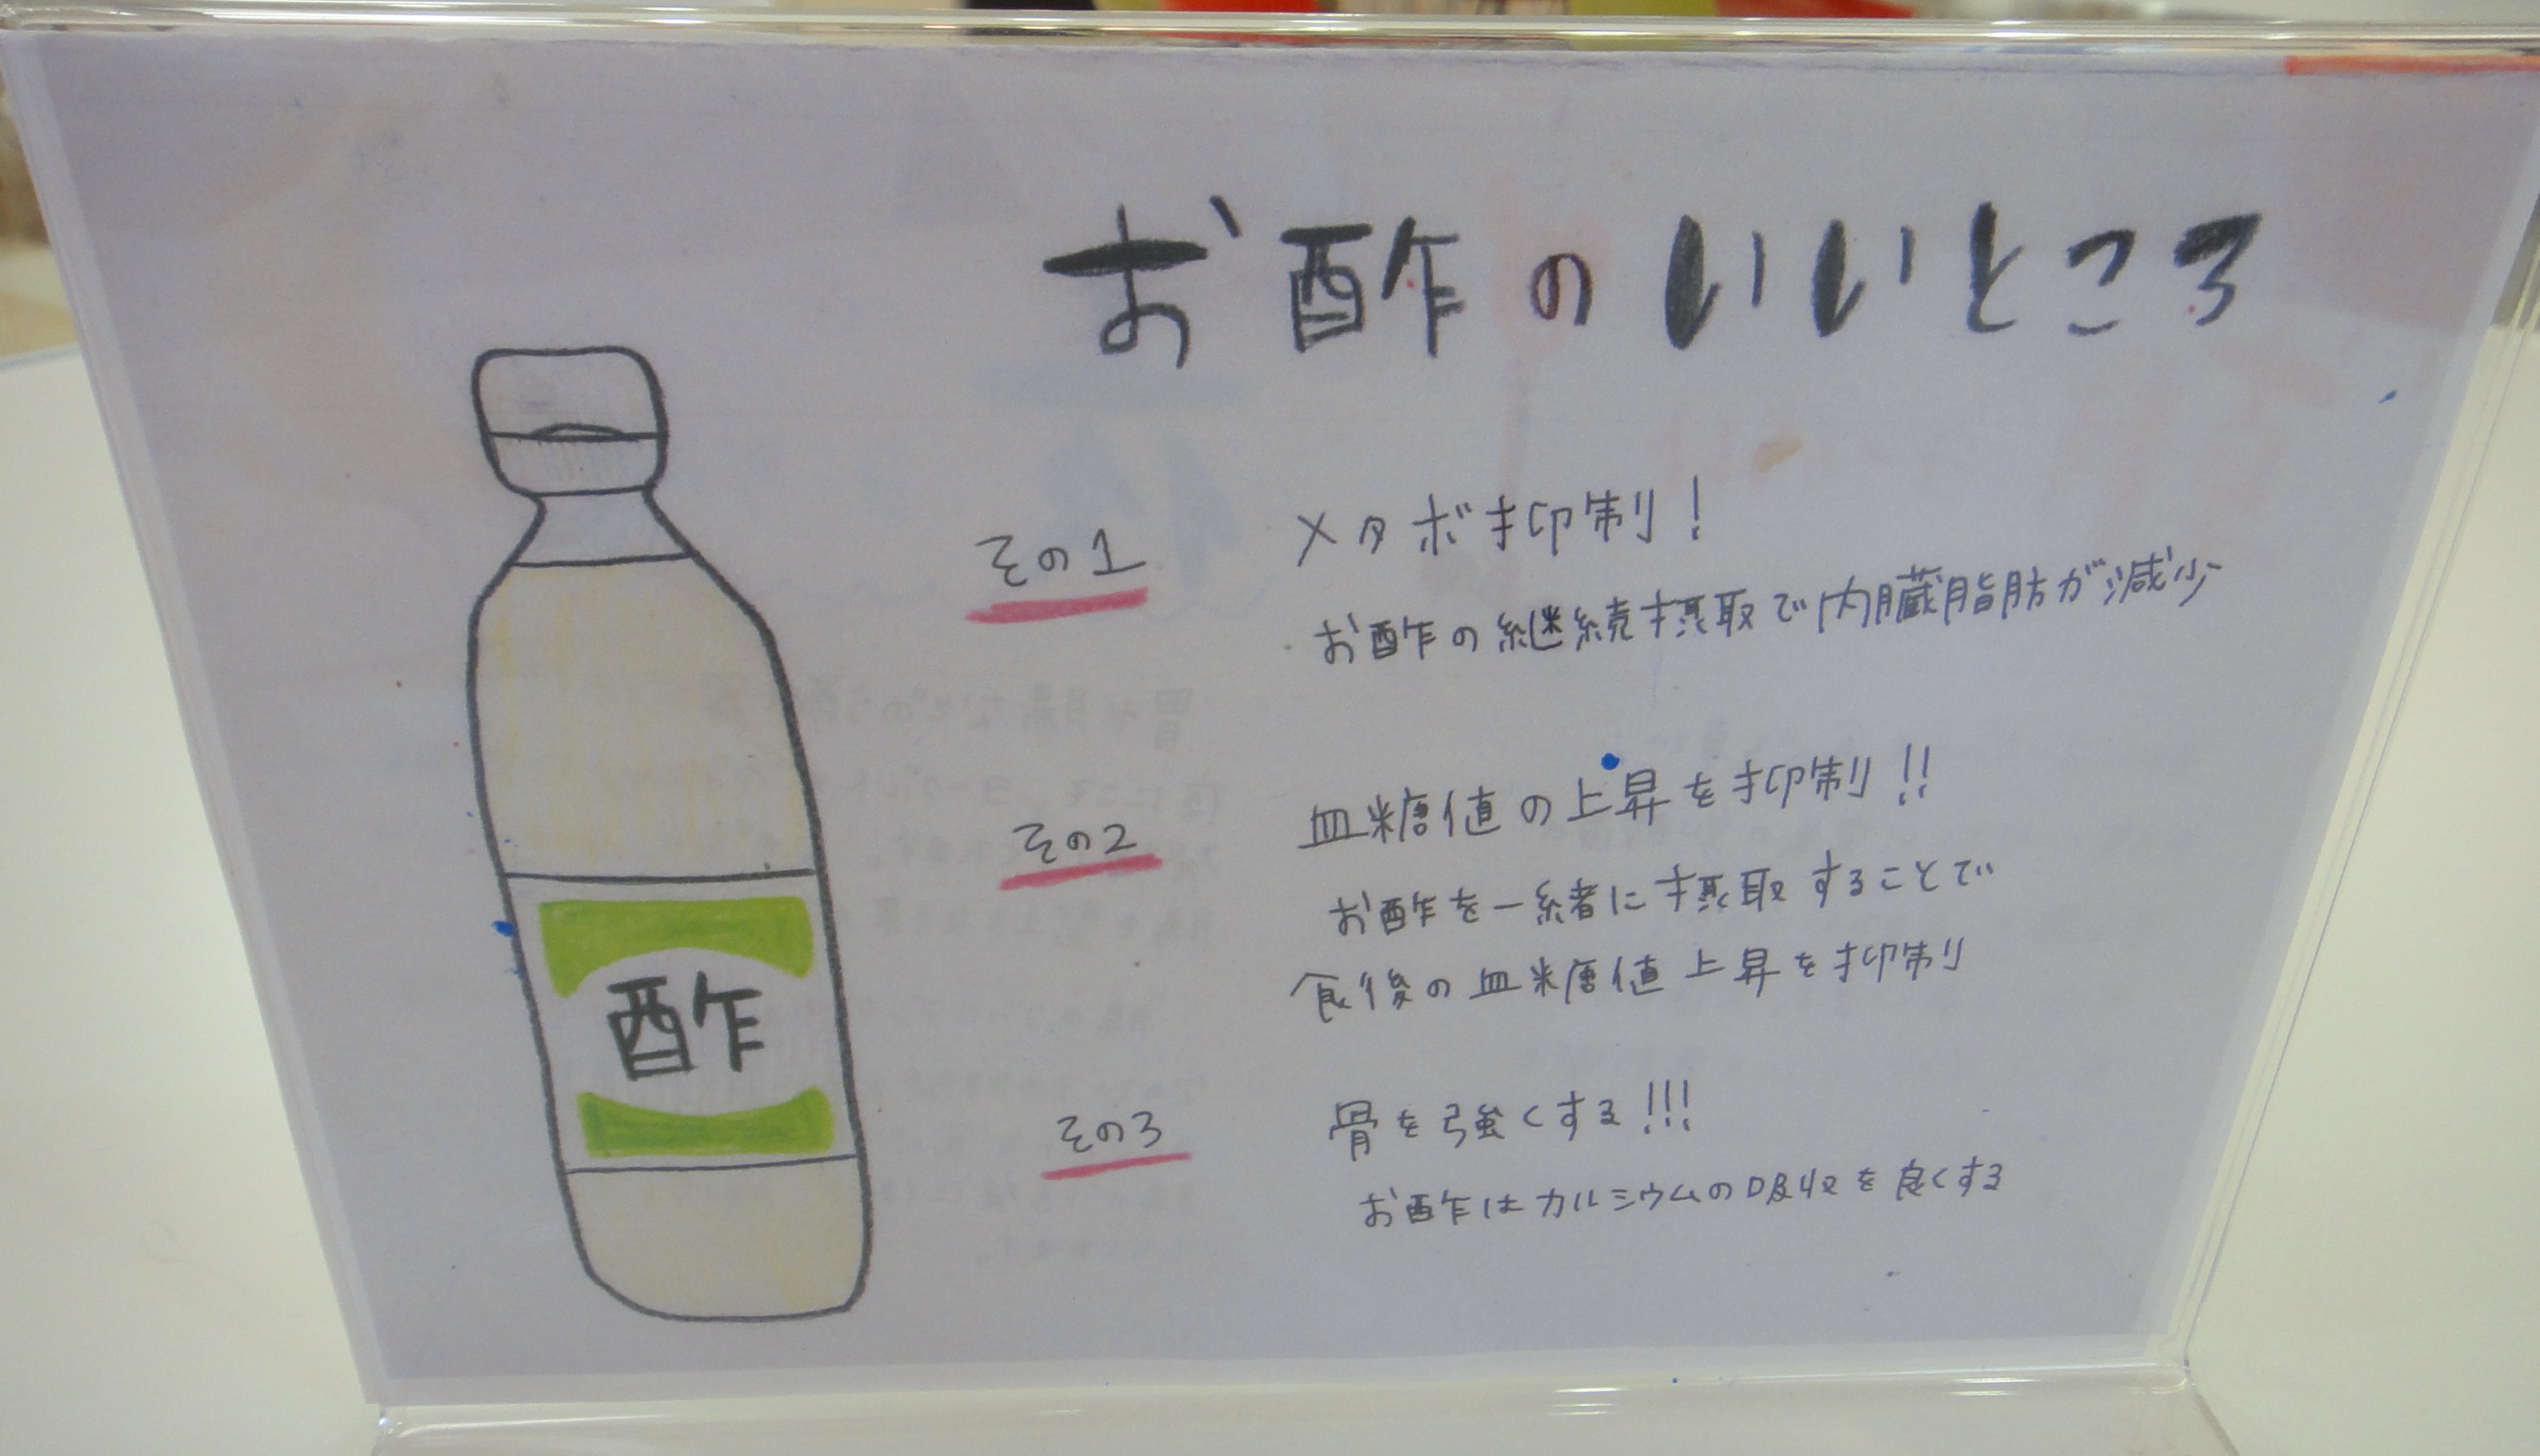 お酢のいいところ
その1
メタボ抑制!
お酢の継続摂取で内臓脂肪が減少
その2
血糖値の上昇を抑制!!
お酢を一緒に摂取することで
食後の血糖値上昇を抑制
その3
骨を強くする!!!
お酢はカルシウムの吸収を良くする
酢